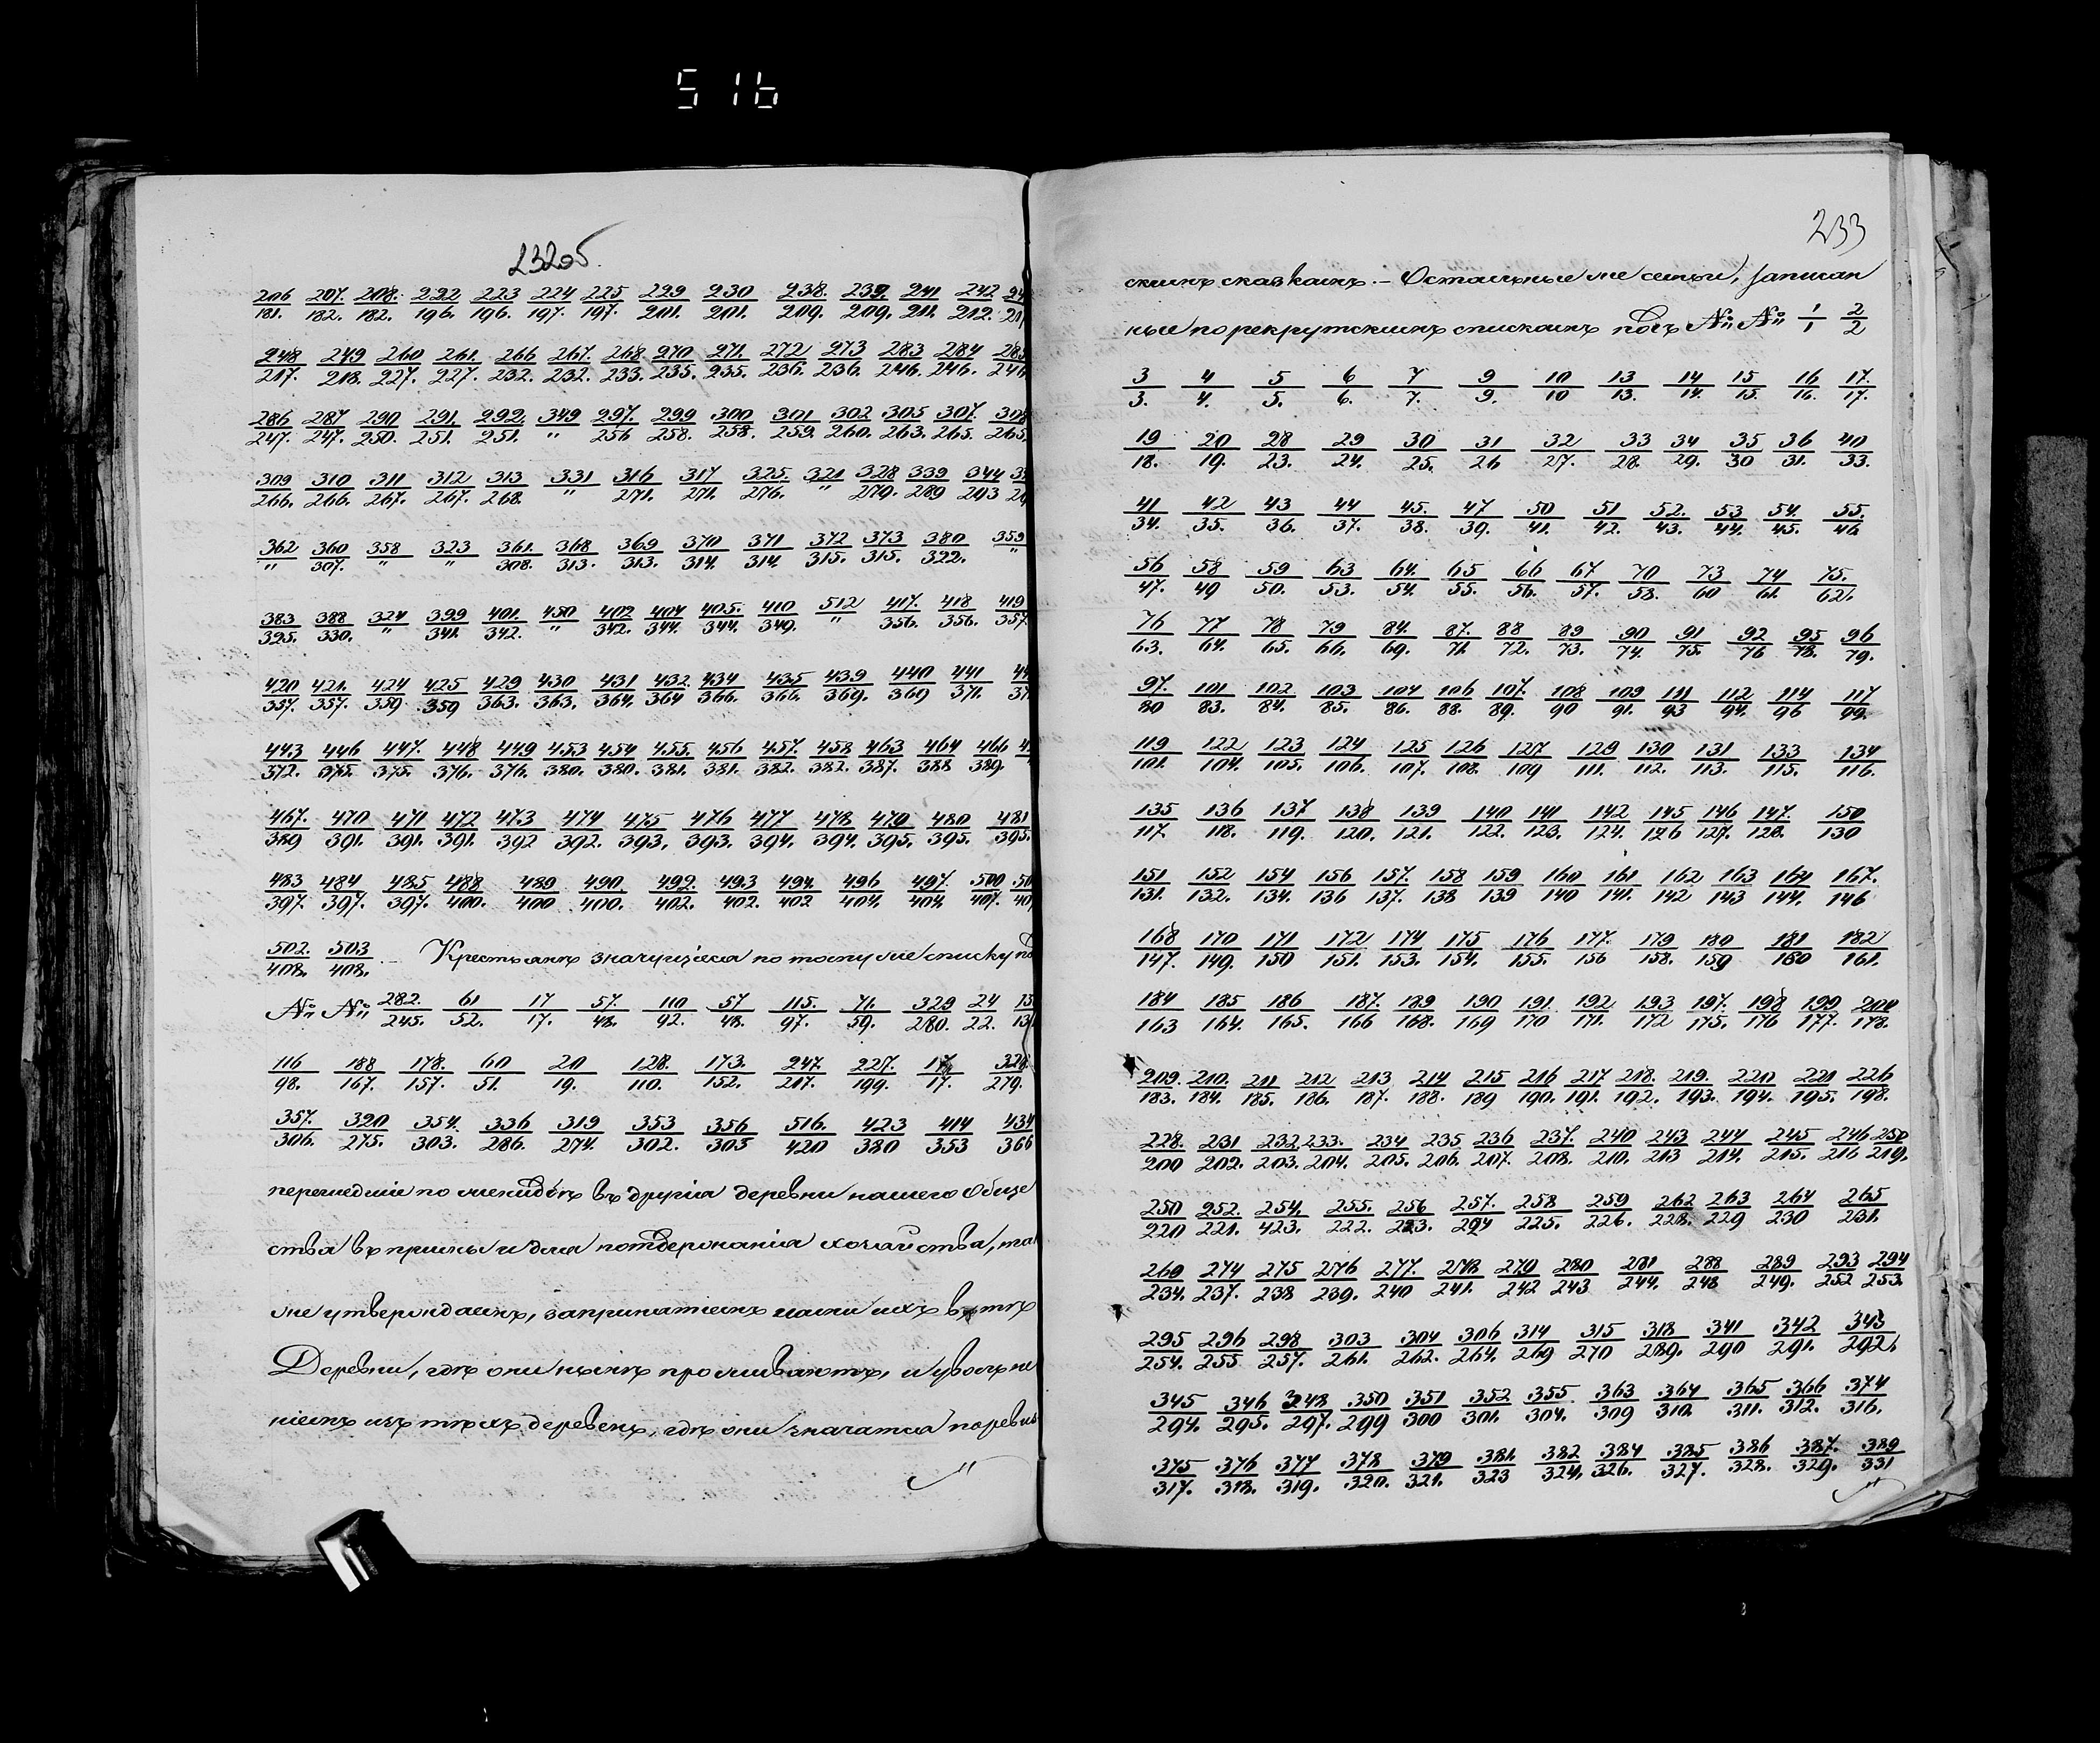 516
232об
206/181. 207./182. 208./182. 222/196. 223/196. 224/197. 225/197. 229/201. 230/201. 238./209. 239./209. 241/211. 242/212.
248/217. 249/218. 260/227. 261./227. 266/232. 267./232. 268/233. 270/235. 271./235. 272/236. 273/236. 283/246. 284/246.
286/247. 287/247. 290/250. 291./251. 292./251. 349/" 297./256 299/258. 300/258. 301/259. 302/260. 305/263. 307./265. 308/265.
309/266. 310/266. 311/267. 312/267. 313/268. 331/" 316/271. 317/271. 325./276. 321/" 328/279. 339/289 344/293
362/" 360/307. 358/" 323/" 361./308. 368/313. 369/313. 370/314. 371/314. 372/315. 373/315. 380/322. 359/"
383/325. 388/330. 324/" 399/341. 401./342. 450/" 402/342. 404/344. 405./344. 410/349. 512/" 417./356. 418/356. 419/357.
420/357. 421./357. 424/359. 425/359 429/363. 430/363. 431/364. 432./364 434/366. 435/366. 439/369. 440/369 441/371.
443/372. 446/375. 447./375. 448/376. 449/376. 453/380. 454/380. 455/381. 456/381. 457./382. 458/382. 463/387. 464/388 466/389.
467./389 470/391. 471/391. 472/391. 473/392 474/392. 475/393. 476/393. 477/394. 478/394. 479/395. 480/395. 481/395.
483/397. 484/397. 485/397. 488/400. 489/400 490/400. 492./402. 493/402. 494./402 496/404. 497./404. 500/407.
502./408. 503/408. – Крестьянъ значущіеся по тому же списку
№ № 282./245. 61/52. 17/17. 57./48. 110/92. 57/48. 115./97. 71./59. 329/280. 24/22.
116/98. 188/167. 178./157. 60/51. 20/19. 128./110. 173./152. 247./217. 227./199. 17/17. 328/279.
357./306. 320/275. 354./303. 336/286. 319/274. 353/302. 356/305 516./420 423/380 414/353 434/366
перешедшіе по женидьбѣ въ другія деревни нашего Обще
ства въ примы и для потдержанія хозяйства,
же утверждаемъ, запринятіемъ нами ихъ въ тѣ
Деревни, гдѣ они нынѣ проживаютъ, и увольне
ніемъ изъ тѣхъ деревень, гдѣ они значатся по ревиз
233
скимъ сказкамъ. – Остальные же семьи, записан
ные по рекрутскимъ спискамъ подъ № № 1/1 2/2
3/3. 4/4. 5/5. 6/6. 7/7. 9/9. 10/10 13/13. 14/14. 15/15. 16/16. 17./17.
19/18. 20/19. 28/23. 29/24. 30/25. 31/26 32/27. 33/28. 34/29. 35/30 36/31. 40/33.
41/34. 42/35. 43/36. 44/37. 45./38. 47/39. 50/41. 51/42. 52./43. 53/44. 54./45. 55./46.
56/47. 58/49 59/50. 63/53. 64./54. 65/55. 66/56. 67/57. 70/58. 73/60 74/61. 75./62.
76/63. 77/64. 78/65. 79/66. 84./69. 87./71. 88/72. 89/73. 90/74. 91/75. 92/76 95/78. 96/79.
97./80 101/83. 102/84. 103/85. 104/86. 106/88. 107./89. 108/90 109/91. 111/93 112/94. 114/96 117/99.
119/101. 122/104. 123/105. 124/106. 125/107. 126/108. 127/109 129/111. 130/112. 131/113. 133/115. 134/116.
135/117. 136/118. 137/119. 138/120. 139/121. 140/122. 141/123. 142/124. 145/126 146/127. 147./128. 150/130
151/131. 152/132. 154/134. 156/136 157./137. 158/138 159/139 160/140 161/141. 162/142 163/143 164/144. 167./146
168/147. 170/149. 171/150 172/151. 174/153. 175/154. 176/155. 177./156 179/158. 180/159 181/160 182/161.
184/163 185/164. 186/165. 187./166 189/168. 190/169 191./170 192/171. 193/172 197./175. 198/176 199/177. 204/178.
209./183. 210./184. 211/185. 212/186. 213/187. 214/188. 215/189 216/190. 217/191. 218./192. 219./193. 220/194. 221/195. 226/198.
228./200 231/202. 232/203. 233./204. 234/205. 235/206. 236/207. 237./208. 240/210. 243/213 244/214. 245/215. 246/216 250/219.
250/220 252./221. 254./423. 255./222. 256/223. 257./224 258/225. 259/226. 262/228. 263/229 264/230 265/231.
269/234. 274/237. 275/238 276/239. 277./240 278/241. 279/242 280/243 281/244. 288/248 289/249. 293/252 294/253.
295/254. 296/255. 298/257. 303/261. 304/262. 306/264. 314/269 315/270 318/289. 341/290 342/291. 343/292.
345/294. 346/295. 348/297. 350/299 351/300 352/301. 355/304. 363/309 364/310. 365/311. 366/312. 374/316.
375/317. 376/318. 377/319. 378/320. 379/321. 381./323 382/324. 384/326. 385/327. 386/328. 387./329. 389/331